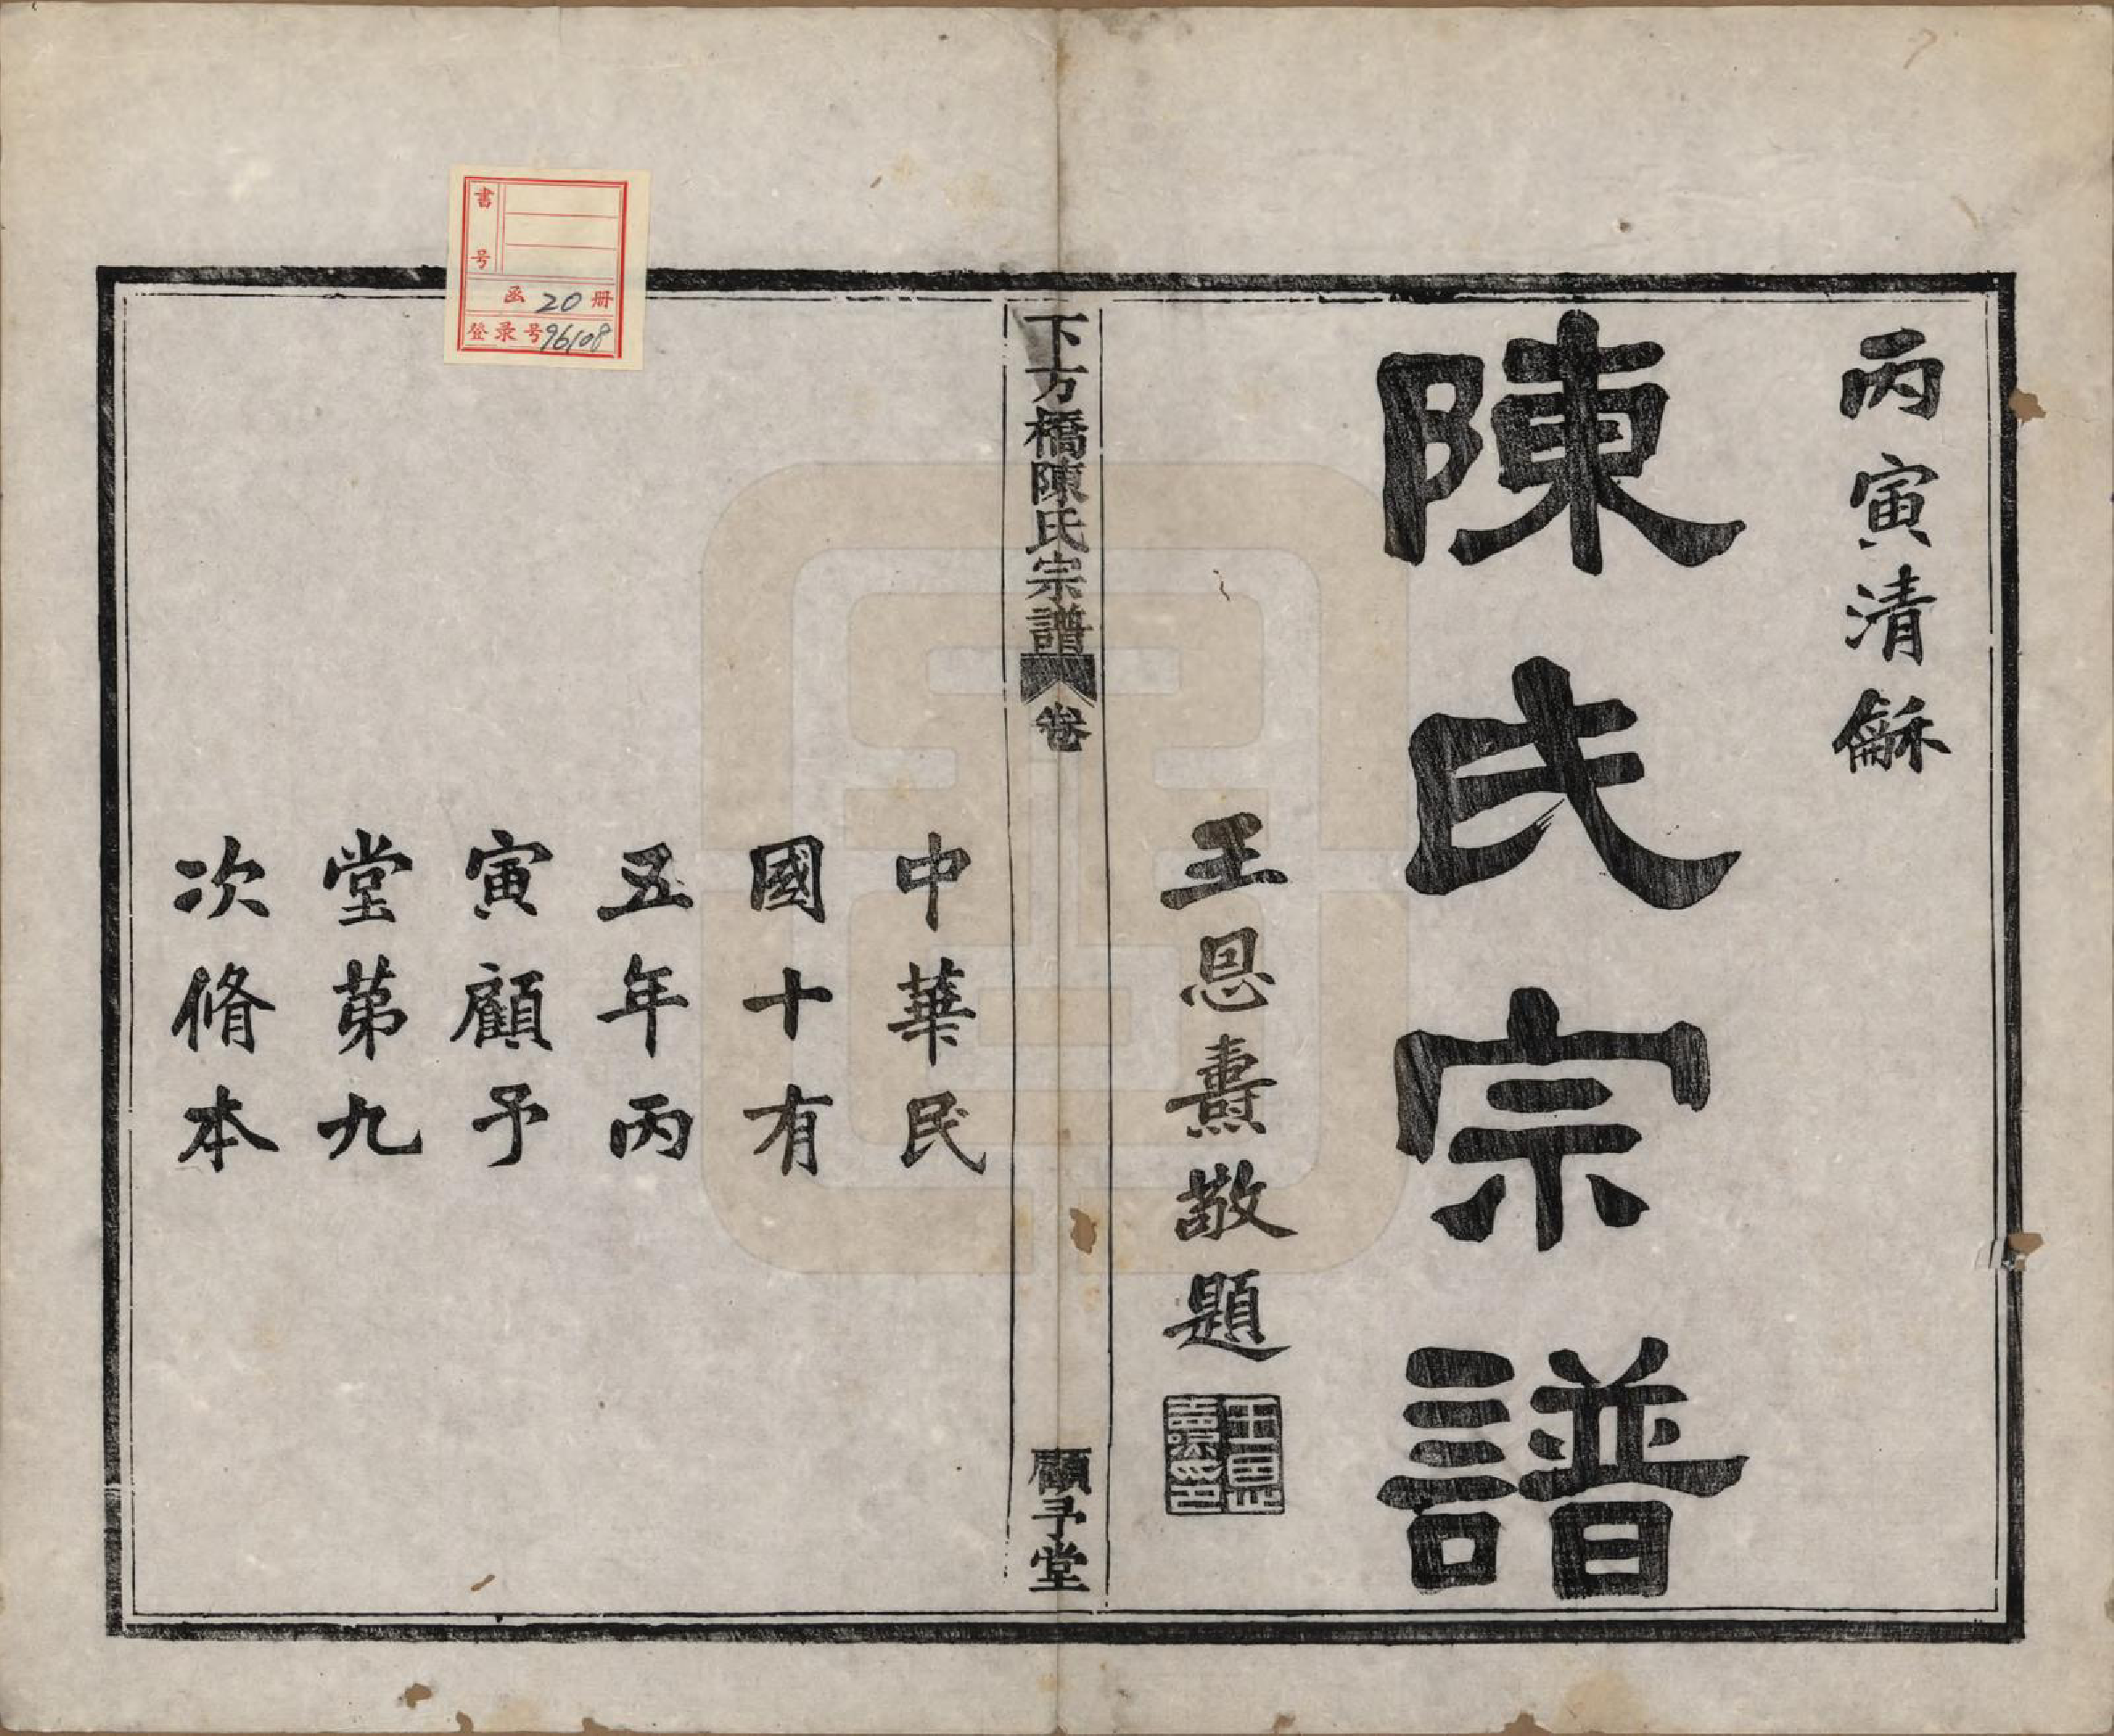 丙寅清龢
陳氏宗譜
王恩燾敬題
下方橋陳氏宗譜 卷
顧予堂
中華民
國十有
五年丙
寅顧予
堂第九
次脩本
書号
函20册
登录号96108